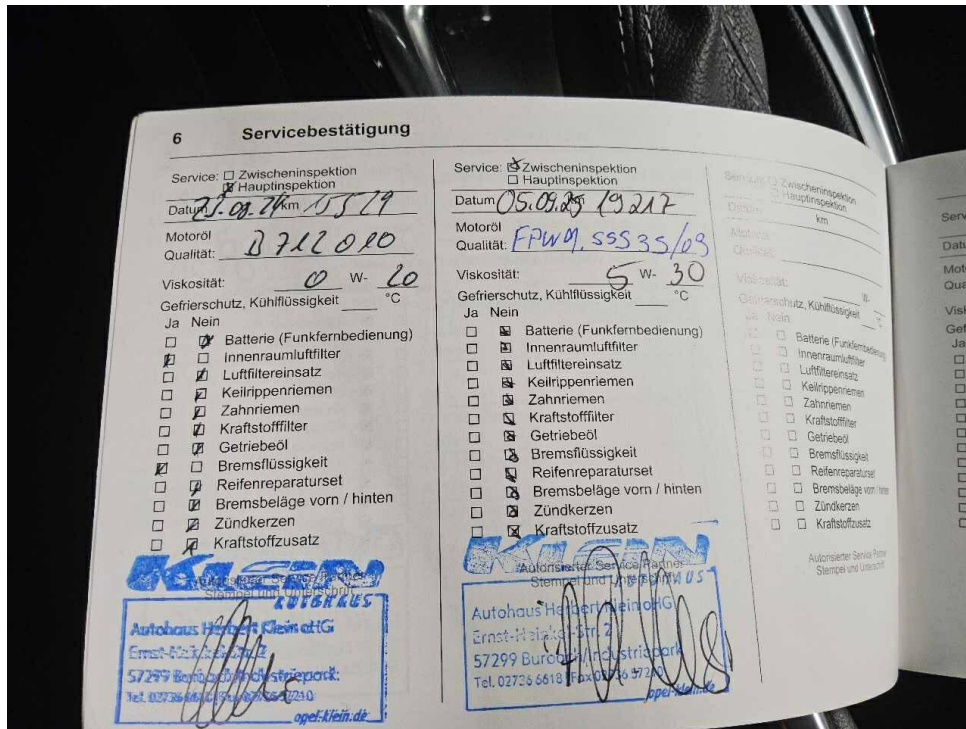 6 Servicebestätigung
Service: Zwischeninspektion
Hauptinspektion
Datum 08.24 km 15519
Motoröl
Qualität: B712010
Viskosität: 0 W- 20
Gefrierschutz, Kühlflüssigkeit °C
Ja Nein
Batterie (Funkfernbedienung)
Innenraumluftfilter
Luftfiltereinsatz
Keilrippenriemen
Zahnriemen
Kraftstofffilter
Getriebeöl
Bremsflüssigkeit
Reifenreparaturset
Bremsbeläge vorn / hinten
Zündkerzen
Kraftstoffzusatz
KLEIN
Autorisierter Service Partner
Stempel und Unterschrift
AUTOHAUS
Autohaus Herbert Klein oHG
Ernst-Heinkel-Str. 2
57299 Burbach/Industriepark
Tel. 02736
opel-klein.de
Service: Zwischeninspektion
Hauptinspektion
Datum 05.09.25 19217
Motoröl
Qualität: FPW09.55535/03
Viskosität: 5 W- 30
Gefrierschutz, Kühlflüssigkeit °C
Ja Nein
Batterie (Funkfernbedienung)
Innenraumluftfilter
Luftfiltereinsatz
Keilrippenriemen
Zahnriemen
Kraftstofffilter
Getriebeöl
Bremsflüssigkeit
Reifenreparaturset
Bremsbeläge vorn / hinten
Zündkerzen
Kraftstoffzusatz
KLEIN
Autorisierter Service Partner
Stempel und Unterschrift
AUTOHAUS
Autohaus Herbert Klein oHG
Ernst-Heinkel-Str. 2
57299 Burbach/Industriepark
Tel. 02736 6618 Fax 02736 57210
opel-klein.de
Service: Zwischeninspektion
Hauptinspektion
Datum km
Motoröl
Qualität:
Viskosität: W-
Gefrierschutz, Kühlflüssigkeit °C
Ja Nein
Batterie (Funkfernbedienung)
Innenraumluftfilter
Luftfiltereinsatz
Keilrippenriemen
Zahnriemen
Kraftstofffilter
Getriebeöl
Bremsflüssigkeit
Reifenreparaturset
Bremsbeläge vorn / hinten
Zündkerzen
Kraftstoffzusatz
Autorisierter Service Partner
Stempel und Unterschrift
Serv
Datu
Mot
Qua
Visk
Gef
Ja